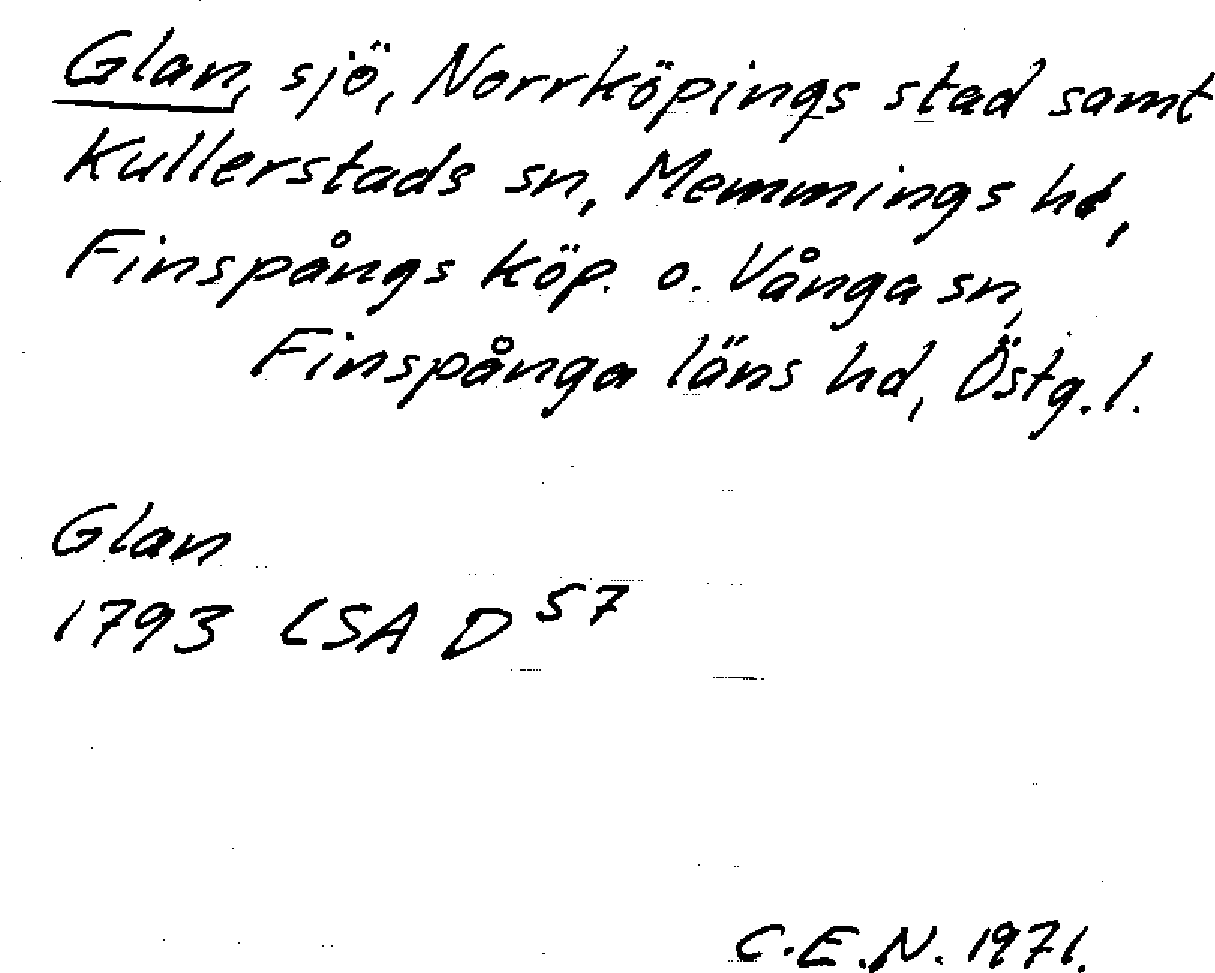 Glan, sjö, Norrköpings stad samt
Kullerstads sn, Memmings hd,
Finspångs köp. o. Vånga sn,
Finspånga läns hd, Östg. l.
Glan
1793 LSA D 57
C.E.N. 1971.